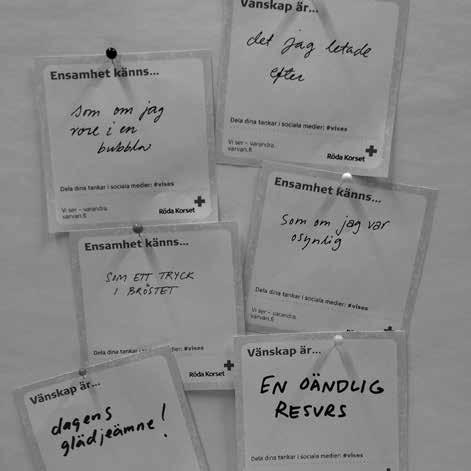 Vänskap är...
det jag letade
efter
Dela dina tankar i sociala medier: #vises
Vi ser – varandra.
varvan.fi
Röda Korset
Ensamhet känns...
som om jag
vore i en
bubbla
Dela dina tankar i sociala medier: #vises
Vi ser – varandra.
varvan.fi
Röda Korset
Ensamhet känns...
Som om jag var
osynlig
Dela dina tankar i sociala medier: #vises
Vi ser – varandra.
varvan.fi
Röda Korset
Ensamhet känns...
SOM ETT TRYCK
I BRÖSTET
Dela dina tankar
Röda Korset
Vänskap är...
dagens
glädjeämne!
Vänskap är...
EN OÄNDLIG
RESURS
Dela dina tankar i sociala medier: #vises